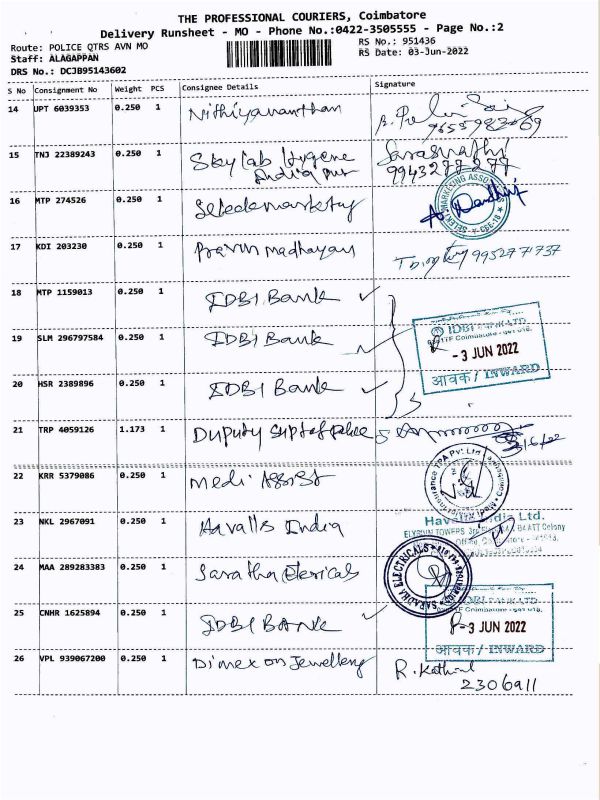 THE PROFESSIONAL COURIERS, Coimbatore
Delivery Runsheet - MO - Phone No.:0422-3505555 - Page No.:2
Route: POLICE QTRS AVN MO
RS No.: 951436
Staff: ALAGAPPAN
RS Date: 03-Jun-2022
DRS No.: DCJB95143602
S No Consignment No Weight PCS Consignee Details Signature
14 UPT 6039353 0.250 1 Nithiyananthan
15 TNJ 22389243 0.250 1 Skylab Hygene
India pvt
9943277277
16 MTP 274526 0.250 1 Selectmarketing
17 KDI 203230 0.250 1 Pravin madhavan 9952771737
18 MTP 1159013 0.250 1 IDBI Bank
19 SLM 296797584 0.250 1 IDBI Bank
IDBI BANK LTD.
- 3 JUN 2022
आवक / INWARD
20 HSR 2389896 0.250 1 IDBI Bank
21 TRP 4059126 1.173 1 Duputy Suptof police
3/6/22
22 KRR 5379086 0.250 1 Medi Assist
23 NKL 2967091 0.250 1 Havalls India
Havells India Ltd.
24 MAA 289283383 0.250 1 Saratha Elerricals
SARADHA ELECTRICALS
25 CNHR 1625894 0.250 1 IDBI BANK
IDBI BANK LTD.
- 3 JUN 2022
आवक / INWARD
26 VPL 939067200 0.250 1 Dimexon Jewellery
R. Kathir
2306911